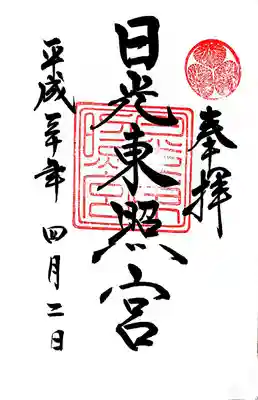 奉拝
日光東照宮
平成二十年 四月二日